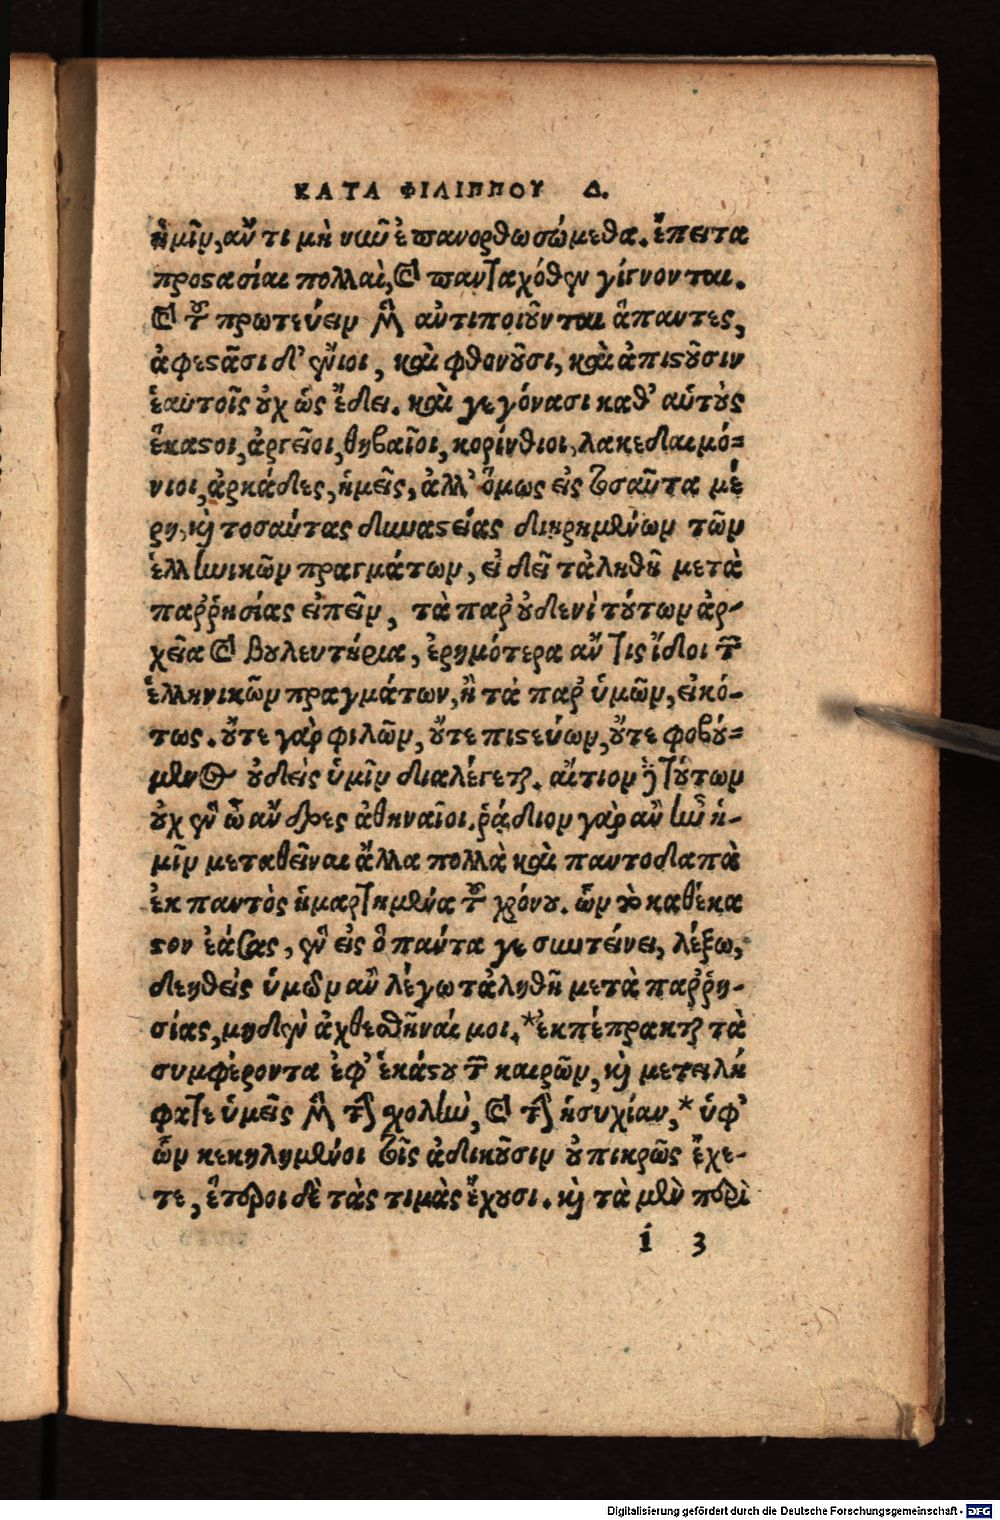 ΚΑΤΑ ΦΙΛΙΠΠΟΥ Δ.
ἡμῖν, ἄν τι μὴ νῦν ἐπανορθωσώμεθα. ἔπειτα
προστασίαι πολλαὶ, καὶ πανταχόθεν γίγνονται.
καὶ τοῦ πρωτεύειν μὲν ἀντιποιοῦνται ἅπαντες,
ἀφεστᾶσι δ' ἔνιοι, καὶ φθονοῦσι, καὶ ἀπιστοῦσιν
ἑαυτοῖς οὐχ ὡς ἔδει. καὶ γεγόνασι καθ' αὑτοὺς
ἕκαστοι, ἀργεῖοι, θηβαῖοι, κορίνθιοι, λακεδαιμό=
νιοι, ἀρκάδες, ἡμεῖς, ἀλλ' ὅμως εἰς τοσαῦτα μέ
ρη, καὶ τοσαύτας δυναστείας διῃρημένων τῶν
ἑλληνικῶν πραγμάτων, εἰ δεῖ τἀληθῆ μετὰ
παῤῥησίας εἰπεῖν, τὰ παρ' οὐδενὶ τούτων ἀρ-
χεῖα καὶ βουλευτήρια, ἐρημότερα ἄν τις ἴδοι τῶν
ἑλληνικῶν πραγμάτων, ἢ τὰ παρ' ὑμῶν, εἰκό-
τως. οὔτε γὰρ φιλῶν, οὔτε πιστεύων, οὔτε φοβού=
μενος οὐδεὶς ὑμῖν διαλέγεται. αἴτιον δὲ τούτων
οὐχ ἓν ὦ ἄνδρες ἀθηναῖοι. ῥᾴδιον γὰρ ἂν ἦν ἡ-
μῖν μεταθεῖναι ἄλλα πολλὰ καὶ παντοδαπὰ
ἐκ παντὸς ἡμαρτημένα τοῦ χρόνου. ὧν τὸ καθέκα
στον ἐάσας, ἓν εἰς ὃ πάντα γε συντείνει, λέξω,
δεηθεὶς ὑμῶν ἂν λέγω τἀληθῆ μετὰ παῤῥη-
σίας, μηδὲν ἀχθεσθῆναί μοι. *ἐκπέπρακται τὰ
συμφέροντα ἐφ' ἑκάστου τῶν καιρῶν, καὶ μετειλή
φατε ὑμεῖς μὲν τὴν σχολὴν, καὶ τὴν ἡσυχίαν,* ὑφ'
ὧν κεκηλημένοι τοῖς ἀδικοῦσιν οὐ πικρῶς ἔχε-
τε, ἕτεροι δὲ τὰς τιμὰς ἔχουσι. καὶ τὰ μὲν περὶ
i 3
Digitalisierung gefördert durch die Deutsche Forschungsgemeinschaft - DFG